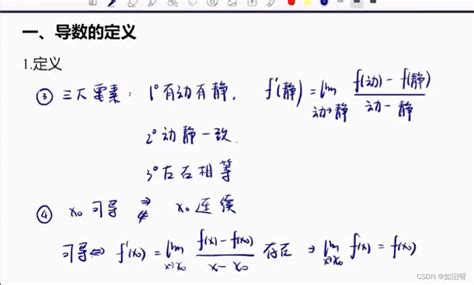 一、导数的定义
1.定义
③ 三大要素: 1° 有动有静. f'(静) = lim_{动→静} \frac{f(动) - f(静)}{动 - 静}
2° 动静一致.
3° 左右相等
④ x₀ 可导 ⇒ ⇍ x₀ 连续
可导 ⇔ f'(x₀) = lim_{x→x₀} \frac{f(x) - f(x₀)}{x - x₀} 存在 ⇒ lim_{x→x₀} f(x) = f(x₀)
CSDN @如旧呀